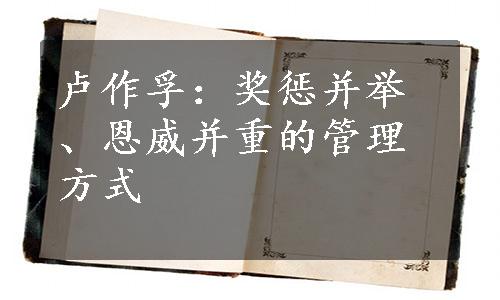 卢作孚：奖惩并举
、恩威并重的管理
方式